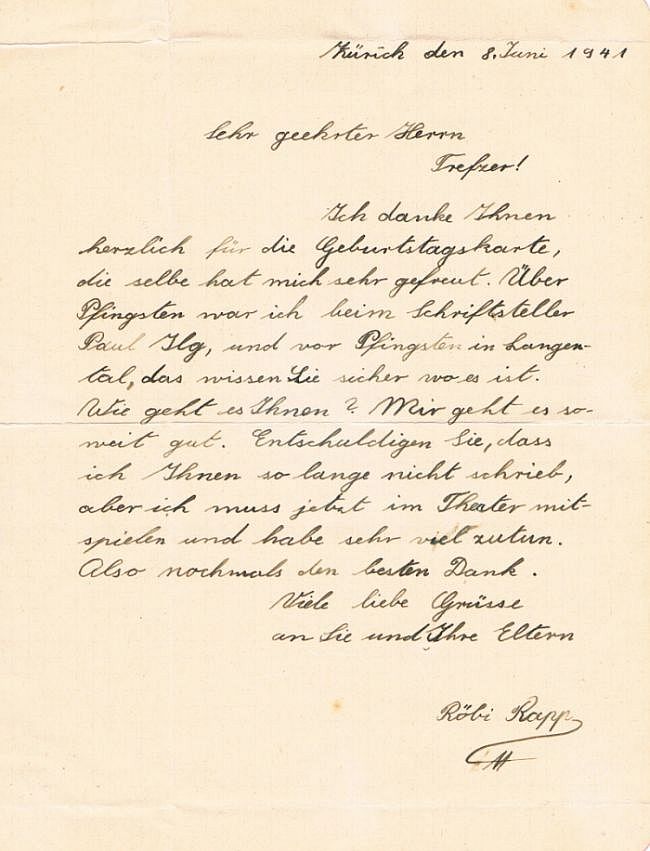 Zürich den 8. Juni 1941
Sehr geehrter Herrn
Trefzer!
Ich danke Ihnen
herzlich für die Geburtstagskarte,
die selbe hat mich sehr gefreut. Über
Pfingsten war ich beim Schriftsteller
Paul Ilg, und vor Pfingsten in Langen-
tal, das wissen Sie sicher wo es ist.
Wie geht es Ihnen? Mir geht es so-
weit gut. Entschuldigen Sie, dass
ich Ihnen so lange nicht schrieb,
aber ich muss jetzt im Theater mit-
spielen und habe sehr viel zutun.
Also nochmals den besten Dank.
Viele liebe Grüsse
an Sie und Ihre Eltern
Röbi Rapp